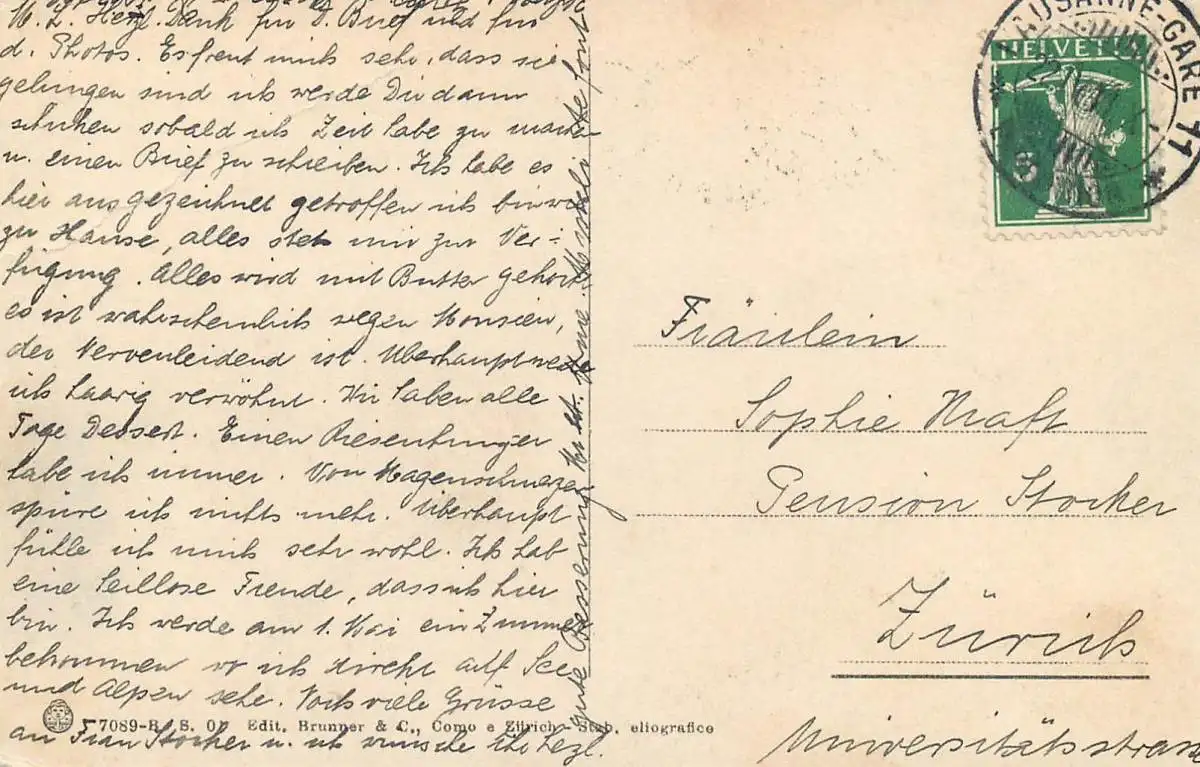 M. L. Herzl. Dank für D. Brief und für
d. Photos. Es freut mich sehr, dass sie
gelungen sind ich werde Dir dann
schicken sobald ich Zeit habe zu machen
u. einen Brief zu schreiben. Ich habe es
hier ausgezeichnet getroffen ich bin wie
zu Hause, alles steht mir zur Ver-
fügung. Alles wird mit Butter gekocht
es ist wahrscheinlich wegen Monsieur,
der Nervenleidend ist. Überhaupt werde
ich haarig verwöhnt. Wir haben alle
Tage Dessert. Einen Riesenhunger
habe ich immer. Von Magenschmerzen
spüre ich nichts mehr. Überhaupt
fühle ich mich sehr wohl. Ich hab
eine heillose Freude, dass ich hier
bin. Ich werde am 1. Mai ein Zimmer
bekommen wo ich direkt auf See
und Alpen sehe. Noch viele Grüsse
an Frau Stocker u. ich wünsche Ihr hezl.
gute Besserung
LAUSANNE-GARE 11
HELVETIA
5
Fräulein
Sophie Kraft
Pension Stocker
Zürich
Universitätsstrasse
7089-B. S. 01 Edit. Brunner & C., Como e Zürich - Stab. eliografico